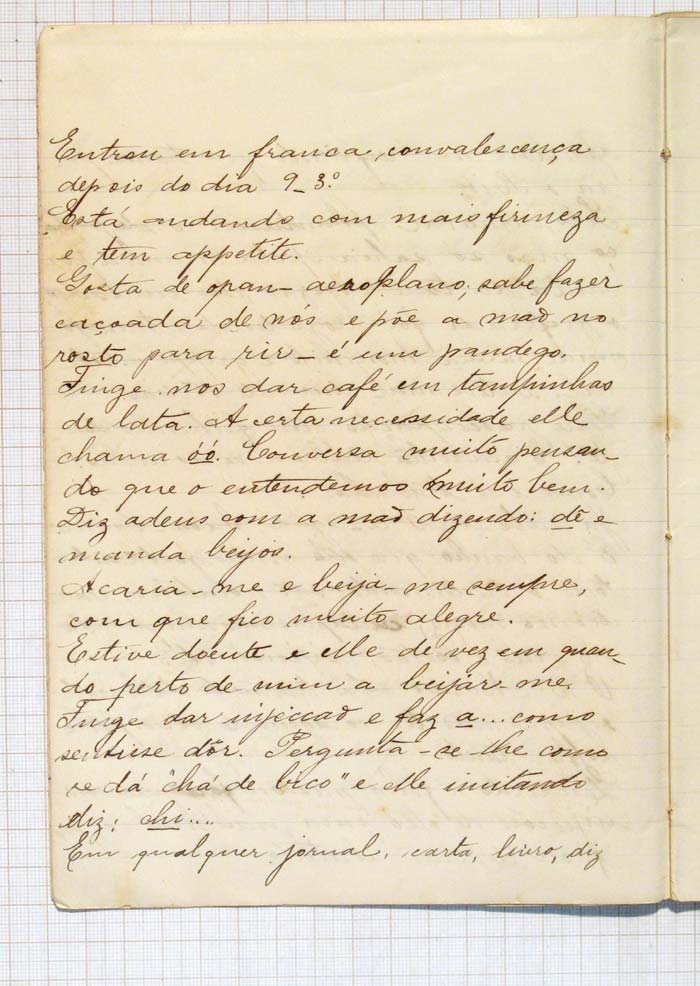 Entrou em franca convalescença
depois do dia 9_3º
Está andando com mais firmeza
e tem appetite.
Gosta de opan_aeroplano; sabe fazer
caçoada de nós e põe a maõ no
rosto para rir_ é um pandego.
Finge nos dar café em tampinhas
de lata. A certa necessidade elle
chama óó. Conversa muito pensan_
do que o entendemos muito bem.
Diz adeus com a maõ dizendo: dê e
manda beijos.
Acaria_me e beija_me sempre,
com que fico muito alegre.
Estive doente e elle de vez em quan_
do perto de mim a beijar-me.
Finge dar injecçaõ e faz a... como
sentisse dôr. Pergunta-se-lhe como
se dá "chá de bico" e elle imitando
diz: chi....
Em qualquer jornal, carta, livro, diz